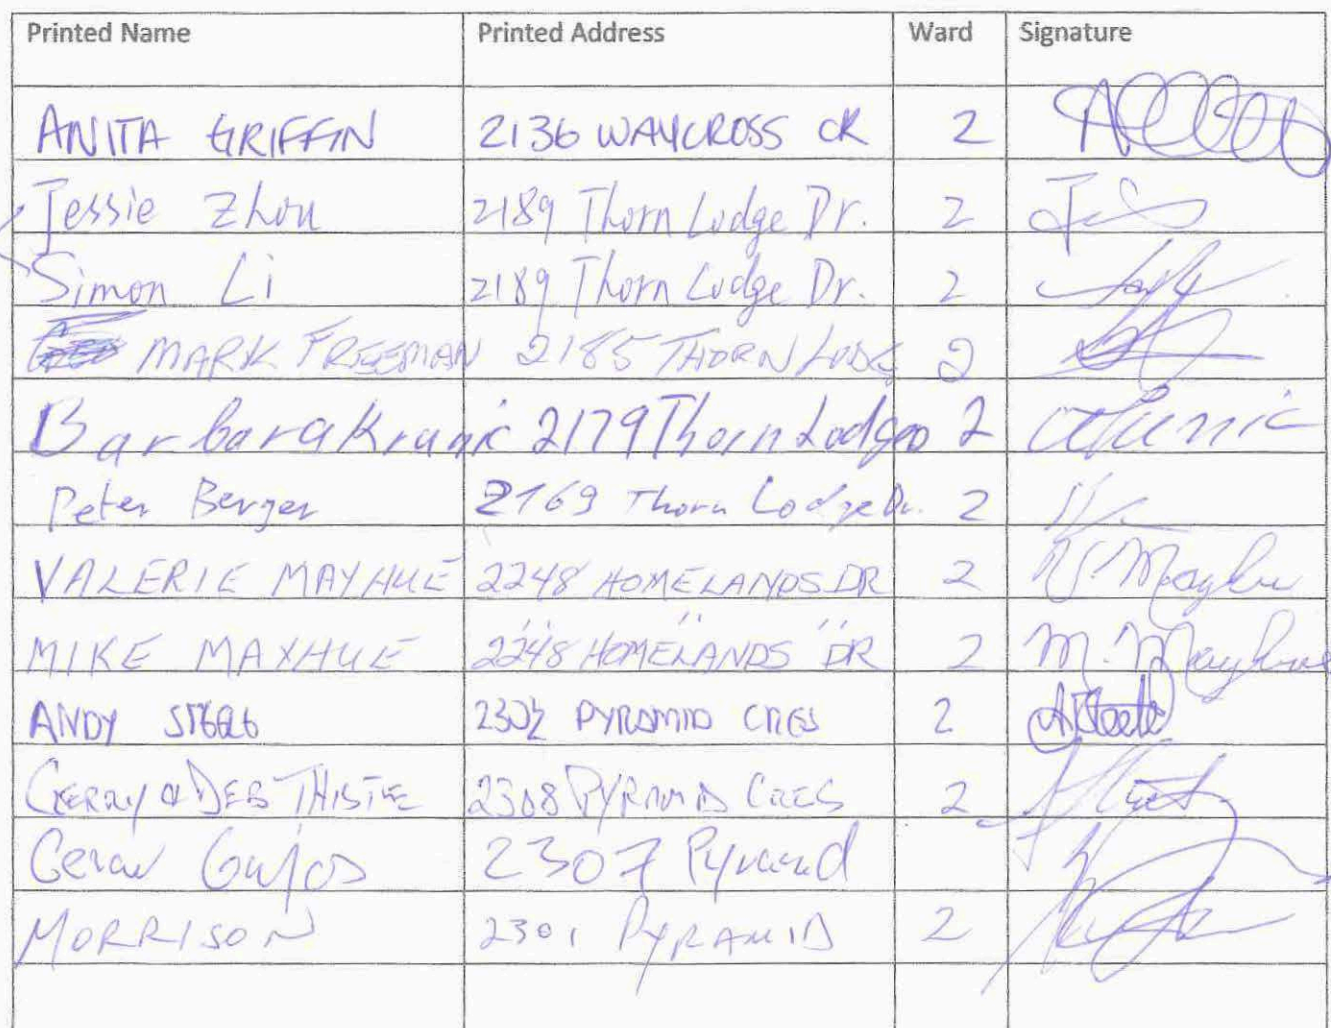 Printed Name Printed Address Ward Signature
ANITA GRIFFIN 2136 WAYCROSS CR 2
Jessie Zhou 2189 Thorn Lodge Dr. 2
Simon Li 2189 Thorn Lodge Dr. 2
MARK FREEMAN 2185 THORN LODG 2
Barbara Kranic 2179 Thorn Lodge 2
Peter Berger 2169 Thorn Lodge Dr. 2
VALERIE MAYHUE 2248 HOMELANDS DR 2 V. Mayhue
MIKE MAYHUE 2248 HOMELANDS DR 2 M. Mayhue
ANDY 2302 PYRAMID CRES 2
GERRY & DEB THISTLE 2308 PYRAMID CRES 2
2307 Pyramid
MORRISON 2301 PYRAMID 2